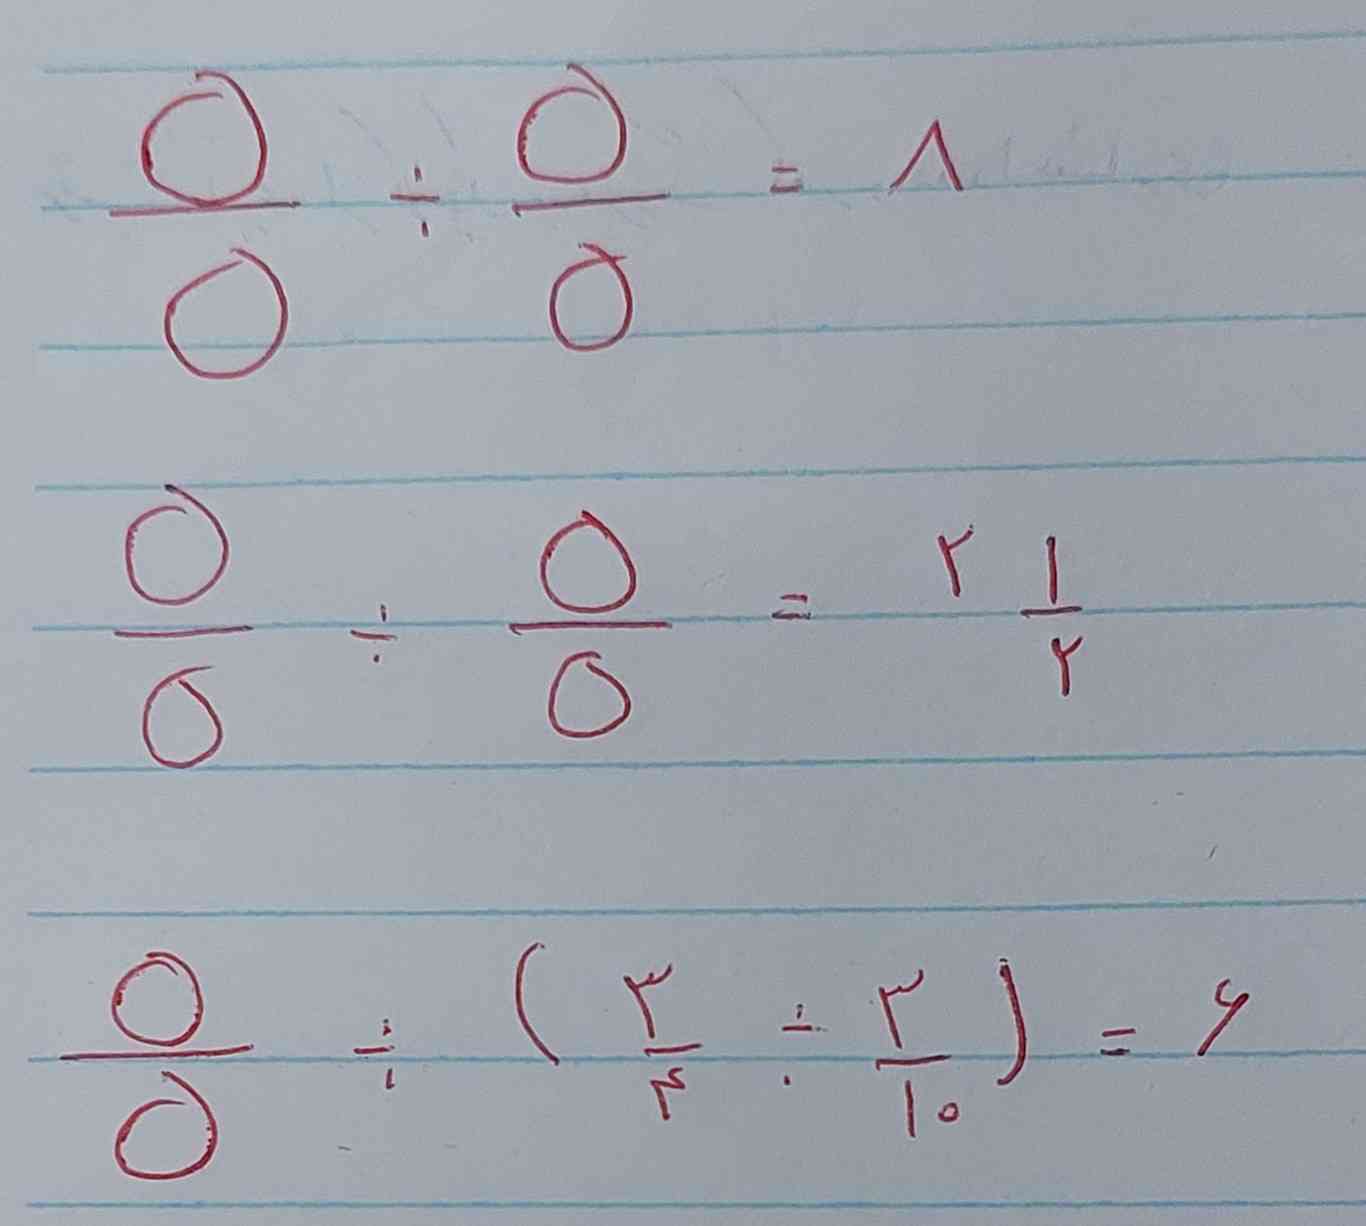 ○/○ ÷ ○/○ = ۸
○/○ ÷ ○/○ = ۲ ۱/۲
○/○ ÷ (۳/۴ ÷ ۳/۱۰) = ۶